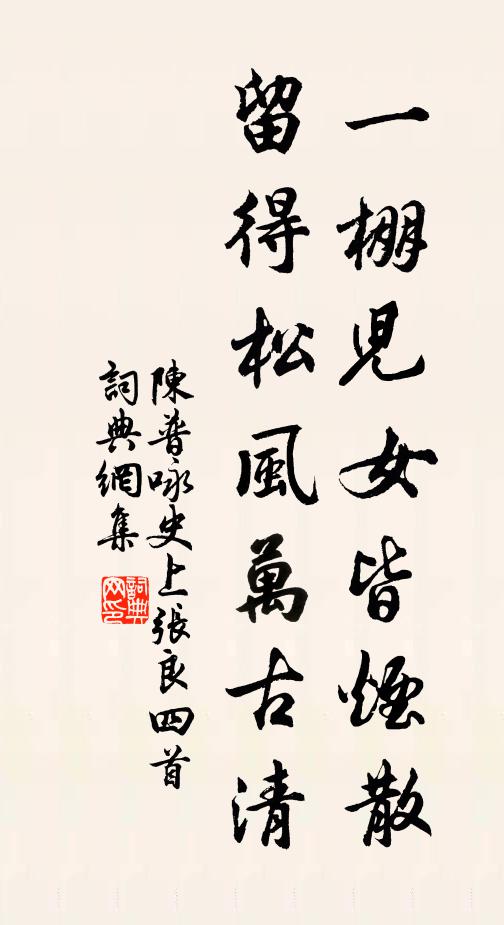 一棚児女皆煙散
留得松風萬古清
陳普咏史上張良四首
詞典網集
詞典
网印